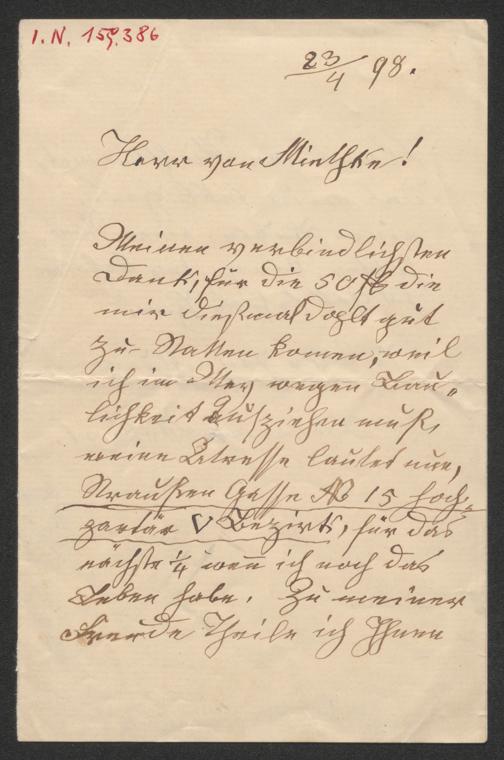 I.N. 159.386
23/4 98.
Herr von Miethke!
Meinen verbindlichsten
Dank, für die 50 fl die
mir dießmal doplt gut
zu Statten komen, weil
ich im May wegen Bau-
lichkeit ausziehen muß,
meine Adresse lautet nun,
Straußen Gasse No 15 hoch-
partär V Bezirk, für das
nächste 1/4 wen ich noch das
Leben habe. Zu meiner
Freude Theile ich Ihnen